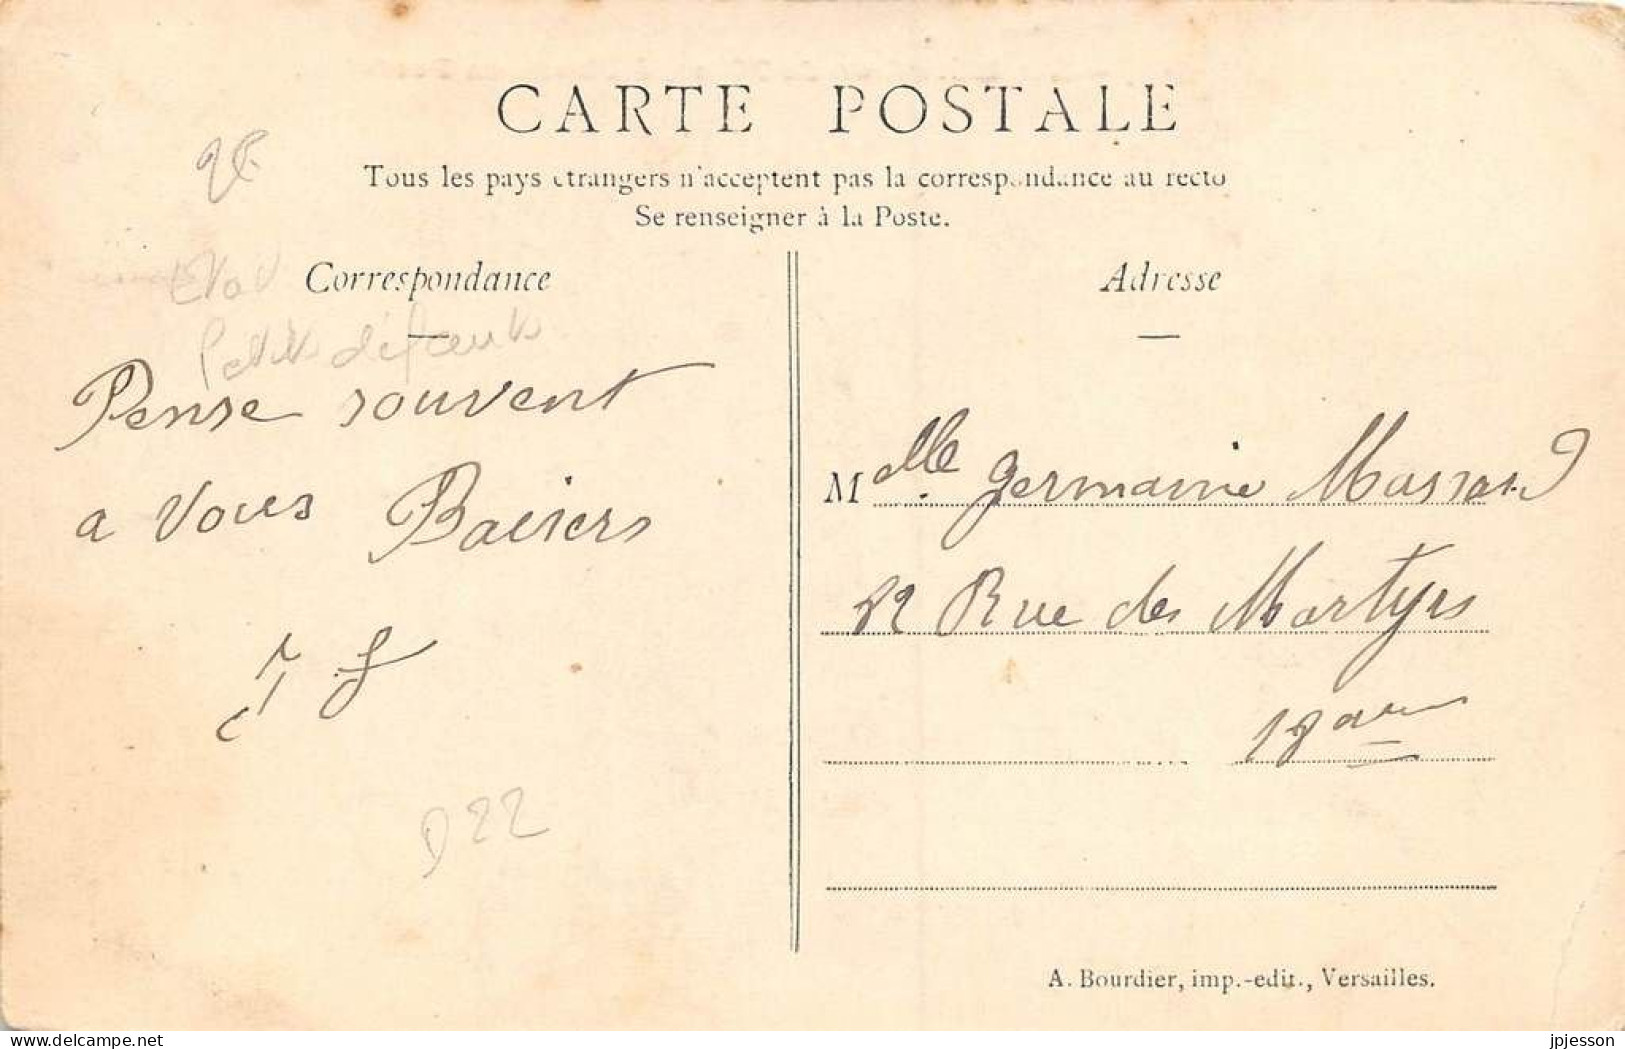 CARTE POSTALE
Tous les pays étrangers n'acceptent pas la correspondance au recto
Se renseigner à la Poste.
Correspondance
Adresse
Petits défauts
Pense souvent
a vous Baisers
D22
Mdlle. Germaine Massard
12 Rue des Martyrs
18 arr
A. Bourdier, imp.-edit., Versailles.
delcampe.net
jpjesson